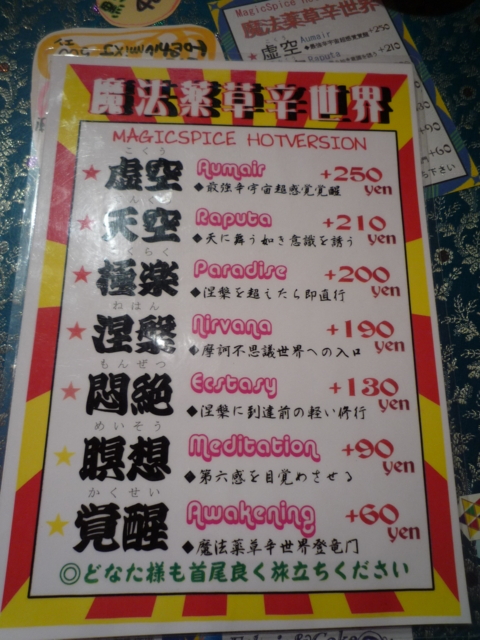 魔法薬草辛世界
MAGICSPICE HOTVERSION
こくう
★虚空 Aumair +250 yen
◆最強辛宇宙超感覚覚醒
んくう
★天空 Raputa +210 yen
◆天に舞う如き意識を誘う
くらく
★極楽 Paradise +200 yen
◆涅槃を超えたら即直行
ねはん
★涅槃 Nirvana +190 yen
◆摩訶不思議世界への入口
もんぜつ
★悶絶 Ecstasy +130 yen
◆涅槃に到達前の軽い修行
めいそう
★瞑想 Meditation +90 yen
◆第六感を目覚めさせる
かくせい
★覚醒 Awakening +60 yen
◆魔法薬草辛世界登竜門
◎どなた様も首尾良く旅立ちください
MagicSpice Hot
魔法薬草辛世界
こくう
★虚空 Aumair +250
Raputa
+210